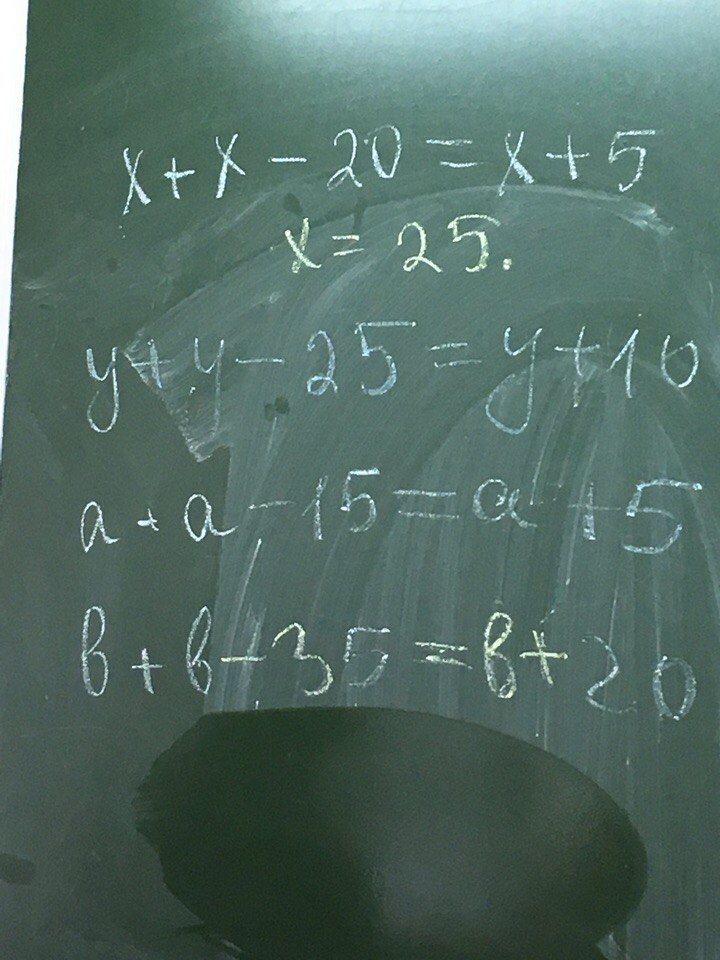 x + x - 20 = x + 5
x = 25.
y + y - 25 = y + 10
a + a - 15 = a + 5
в + в - 35 = в + 20